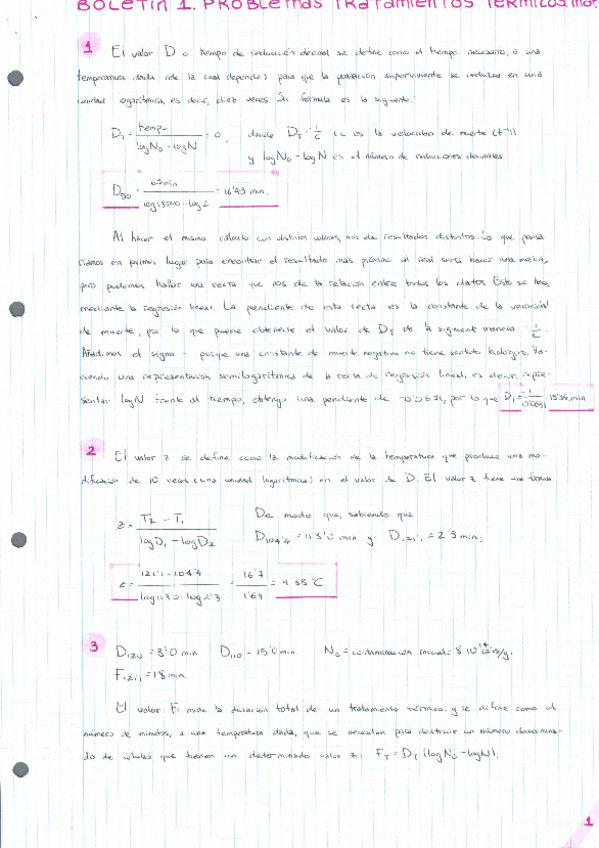 BOLETÍN 1. PROBLEMAS TRATAMIENTOS TÉRMICOS
1 El valor D o tiempo de reducción decimal se define como el tiempo necesario, a una
temperatura dada (de la cual depende) para que la población superviviente se reduzca en una
unidad logarítmica, es decir, diez veces. Su fórmula es la siguiente:
D = tiempo / logN₀ - logN = 0, donde D_T = -1/c (c es la velocidad de muerte (t⁻¹))
y logN₀ - logN es el número de reducciones decimales.
= 16'43 min.
Al hacer el mismo cálculo con distintos valores, nos da resultados distintos. Lo que
en primer lugar para encontrar el resultado más próximo al real sería hacer una media,
pero podemos hallar una recta que nos de la relación entre todos los datos. Esto se hace
mediante la regresión lineal. La pendiente de esta recta es la constante de la velocidad
de muerte, por lo que puede obtenerse el valor de D_T de la siguiente manera: -1/c
Añadimos el signo - porque una constante de muerte negativa no tiene sentido biológico.
una representación semilogarítmica de la recta de regresión lineal, es decir,
logN frente al tiempo, obtengo una pendiente de por lo que
2 El valor z se define como la modificación de la temperatura que produce una mo-
dificación de 10 veces (una unidad logarítmica) en el valor de D. El valor z tiene una fórmula
z = T₂ - T₁ / logD₁ - logD₂ De modo que, sabiendo que
D₁₀₄'₄ = 113'0 min y D₁₂₁'₁ = 2'3 min;
z = 121'1 - 104'4 / log113'0 - log2'3 = 16'7 / 1'69 = 9'88 °C
3 D₁₂₀ = 3'0 min D₁₁₀ = 15'0 min. N₀ = contaminación inicial =
F₁₂₁'₁ = 18 min
El valor F mide la duración total de un tratamiento térmico y se define como el
número de minutos, a una temperatura dada, que se necesitan para destruir un número determina-
do de células que tienen un determinado valor z: F_T = D_T (logN₀ - logN).
1